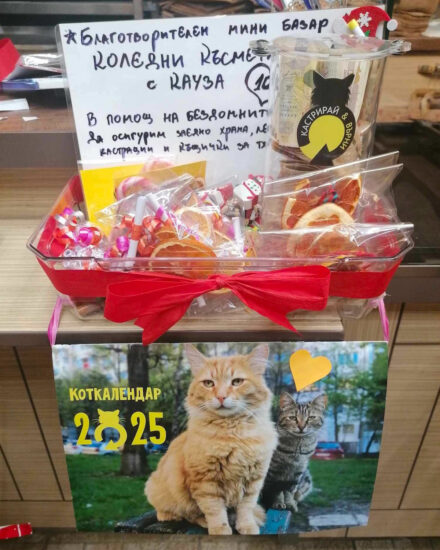 ★Благотворителен мини базар
Коледни късме
с кауза
В помощ на бездомнит
да осигурим заедно храна, ле
кастрации и къщички за тх
КАСТРИРАЙ & ВЪРНИ
КОТКАЛЕНДАР
2025